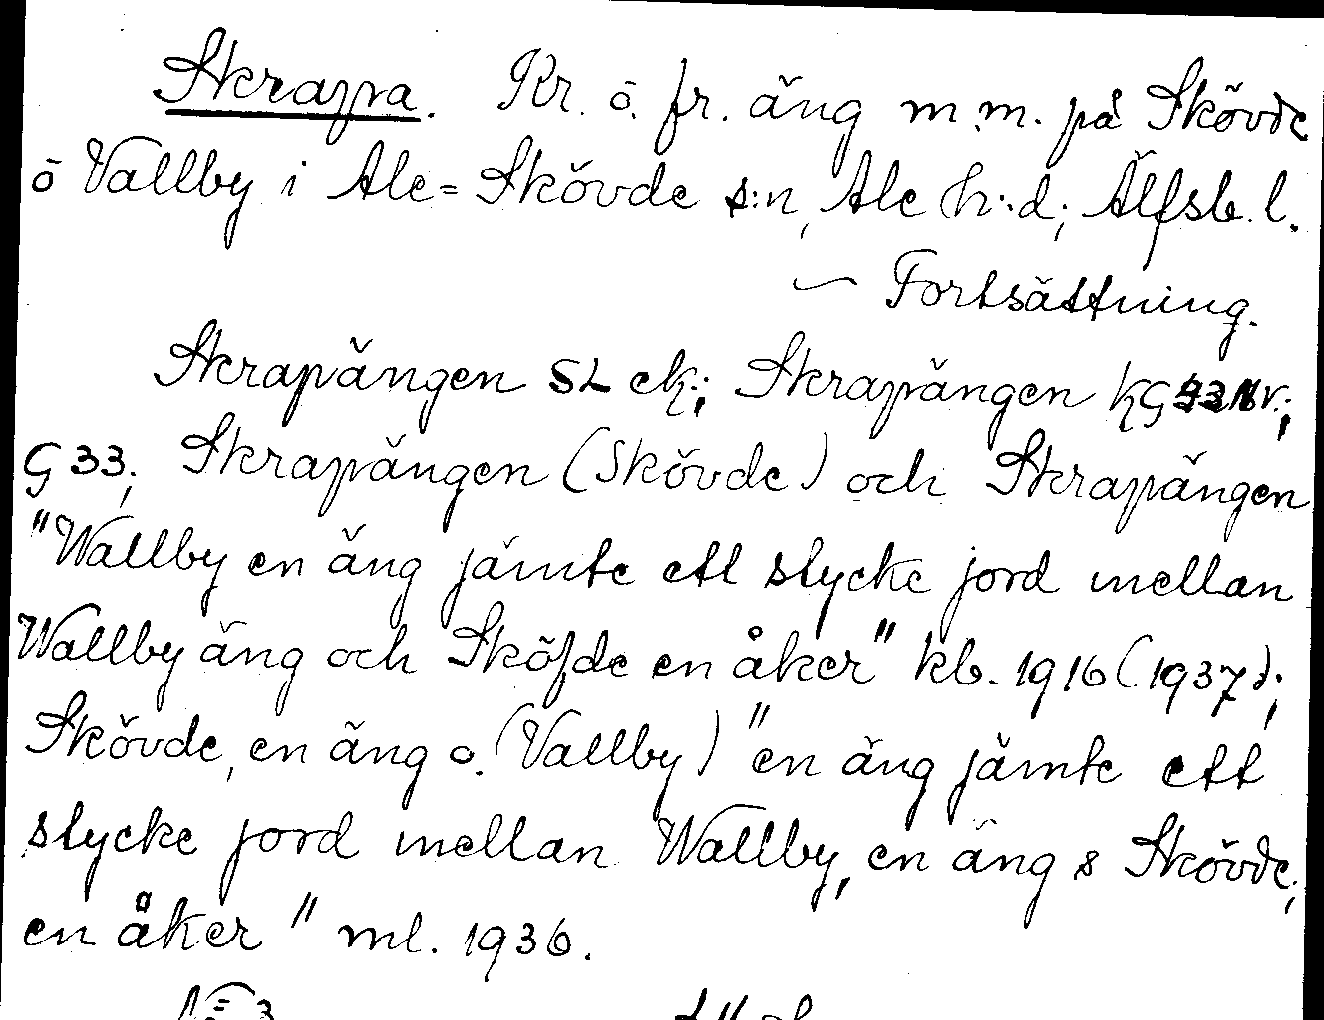 Skrapra. Kr. ö. fr. äng m.m. på Skövde
ö Vallby i Ale-Skövde s:n, Ale h:d; Älfsb. l.
— Fortsättning.
Skrapängen SL ek.; Skrapängen KG
G 33; Skrapängen (Skövde) och Skrapängen
"Wallby en äng jämte ett stycke jord mellan
Wallby äng och Sköfde en åker" kb. 1916 (1937);
Skövde, en äng o. (Vallby) "en äng jämte ett
stycke jord mellan Wallby, en äng & Skövde,
en åker" ml. 1936.